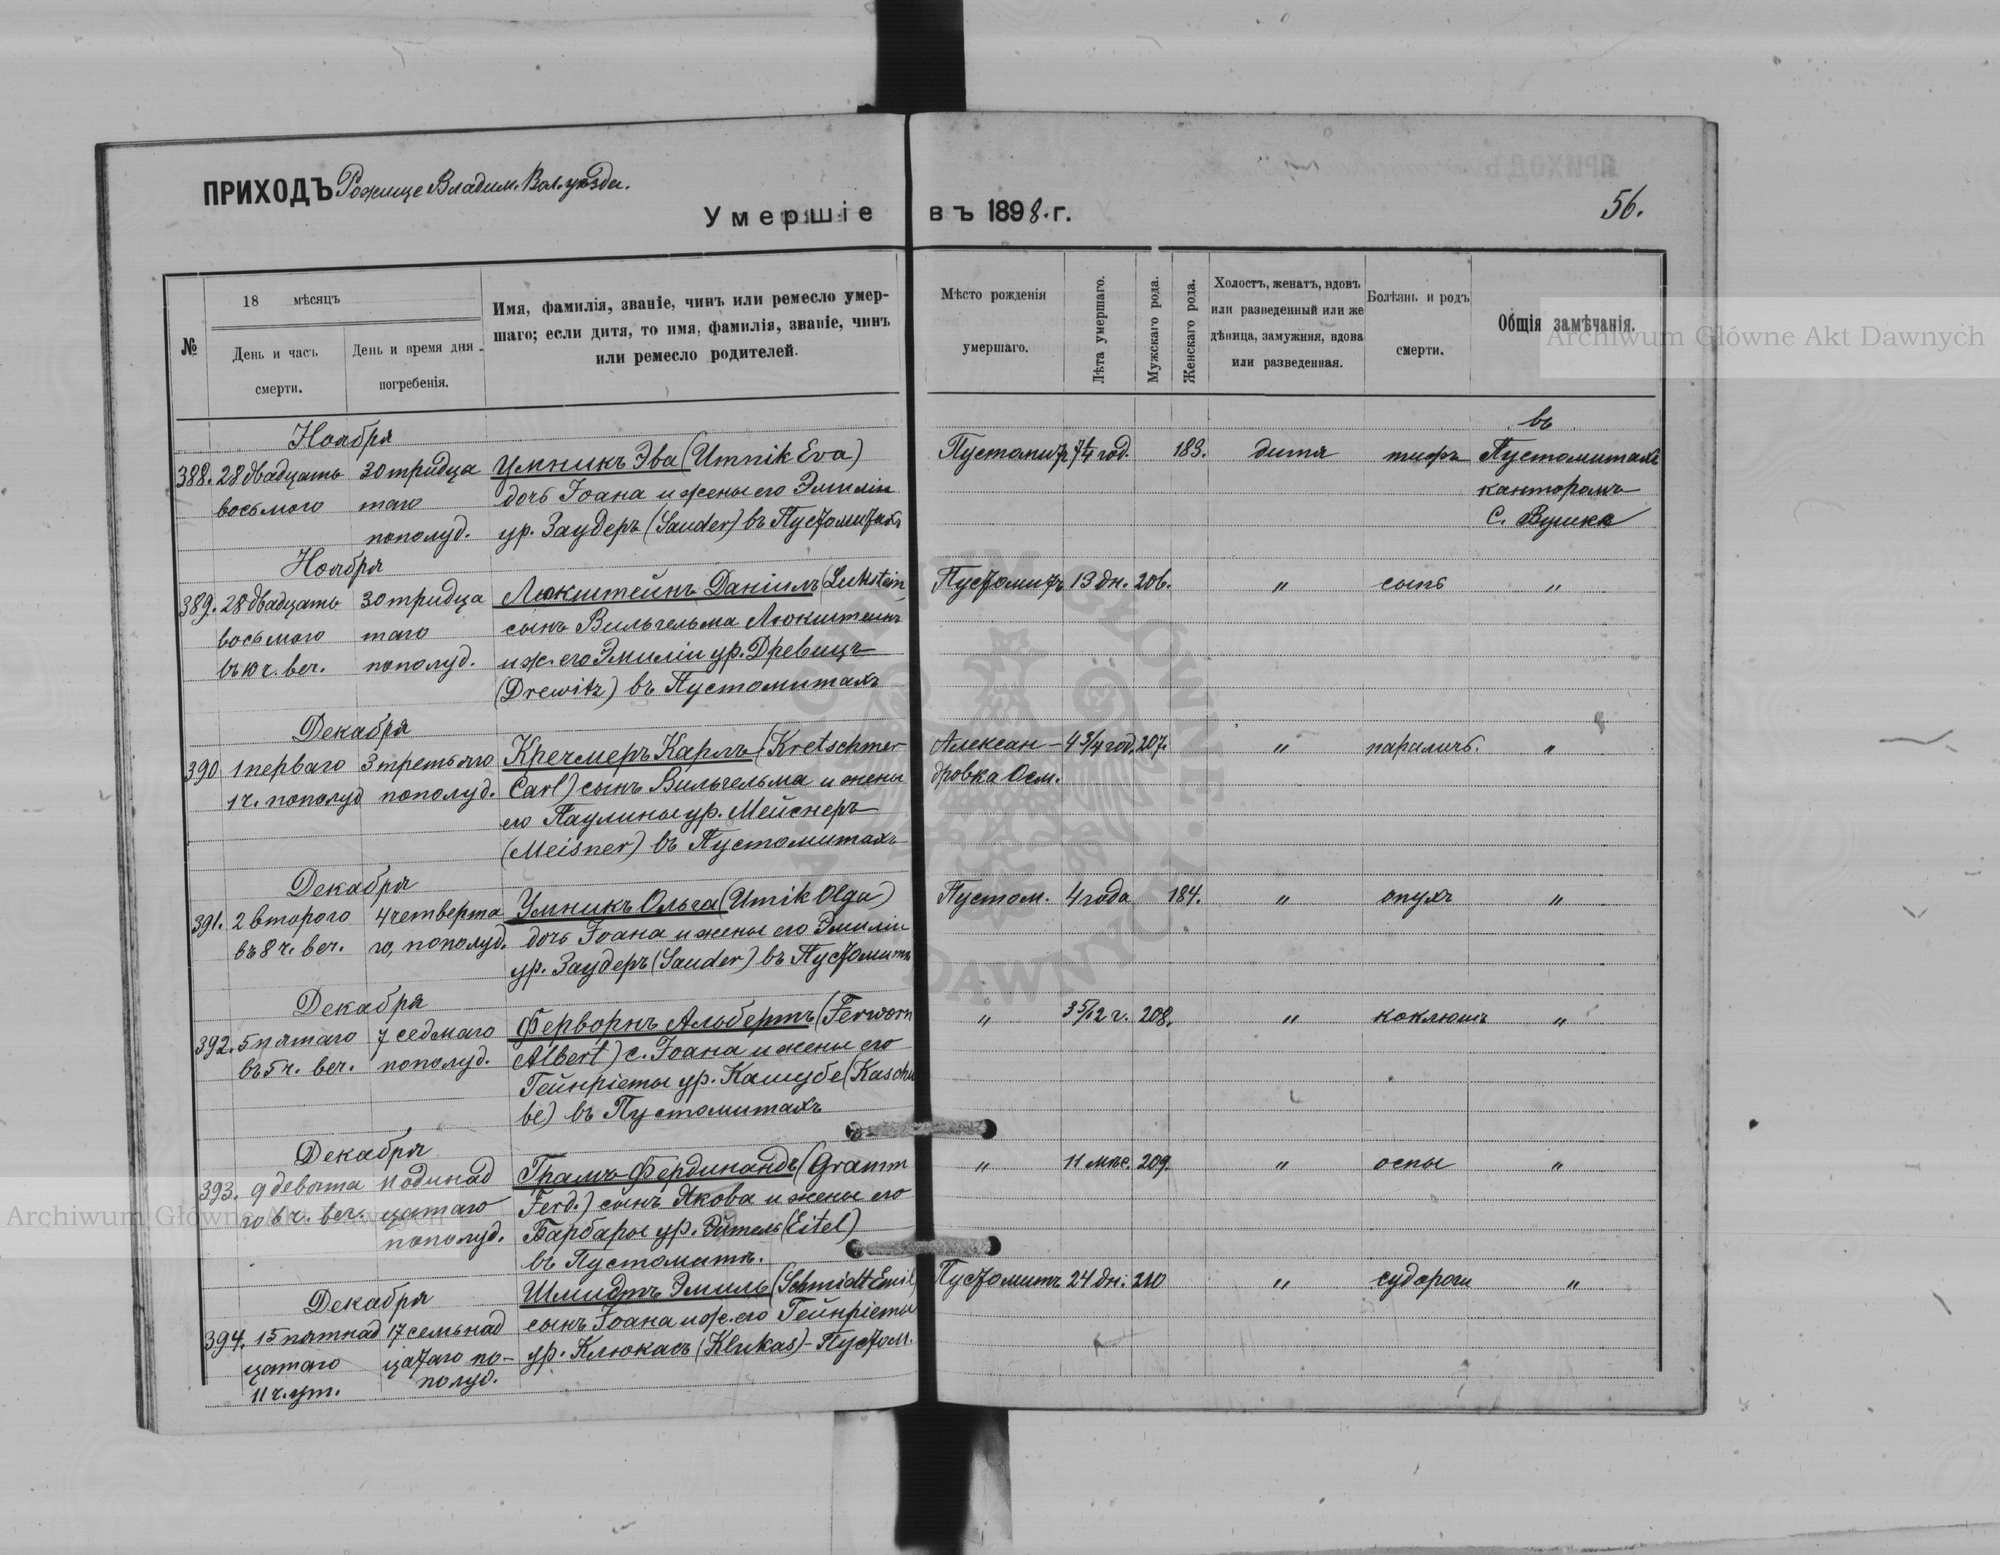 ПРИХОДЪ Рожище Владим. Вол. уѣзда.
Умершіе въ 1898. г.
56.
№
18 мѣсяцъ
День и часъ смерти.
День и время дня погребенія.
Имя, фамилія, званіе, чинъ или ремесло умер-
шаго; если дитя, то имя, фамилія, званіе, чинъ
или ремесло родителей.
Мѣсто рожденія умершаго.
Лѣта умершаго.
Мужскаго рода.
Женскаго рода.
Холостъ, женатъ, вдовъ
или разведенный или же
дѣвица, замужняя, вдова
или разведенная.
Болѣзнь и родъ смерти.
Общія замѣчанія.
Archiwum Główne Akt Dawnych
Ноября
въ
388. 28 двадцать 30 тридца Умникъ Эва (Umnik Eva) 183. дитя тифъ Пустомитахъ
восьмого таго дочь Іоана и жены его Эмиліи канторомъ
пополуд. ур. Заудеръ (Sauder) въ Пустомитахъ С.
Ноября
389. 28 двадцать 30 тридца Люкштейнъ Даніилъ (Lukstein Пустомитъ 13 дн. 206. " сыпь "
восьмого таго сынъ Вильгельма Люкштейнъ
въ 10 ч. веч. пополуд. и ж. его Эмиліи ур. Древицъ
(Drewitz) въ Пустомитахъ
Декабря
390 1 перваго 3 третьяго Кречмеръ Карлъ (Kretschmer Алексан- 4 3/4 год. 207. " параличъ. "
1 ч. пополуд пополуд. Carl) сынъ Вильгельма и жены дровка Осм.
его Паулины ур. Мейснеръ
(Meisner) въ Пустомитахъ
Декабря
391. 2 второго 4 четверта Умникъ Ольга (Umik Olga) Пустом. 4 года 184. " опухъ "
въ 8 ч. веч. го, пополуд. дочь Іоана и жены его Эмиліи
ур. Заудеръ (Sauder) въ Пустомит
Декабря
392. 5 пятаго 7 седмаго Ферворнъ Альбертъ (Ferworn " 3 5/12 г. 208. " коклюшъ "
въ 5 ч. веч. пополуд. Albert) с. Іоана и жены его
Гейнріеты ур. Кашубе (Kaschu
be) въ Пустомитахъ
Декабря
393. 9 девята 11 одинад Грамъ Фердинандъ (Gramm " 11 мѣс. 209. " оспы "
го 6 ч. веч. цатаго Ferd.) сынъ Якова и жены его
пополуд. Барбары ур. Эйтель (Eitel)
въ Пустомит.
Archiwum Główne Akt Dawnych
Декабря Шмидтъ Эмиль (Schmidt Emil) Пустомит 24 дн. 210 " судороги "
394. 15 пятнад 17 семьнад сынъ Іоана и ж. его Гейнріеты
цатаго цатаго по- ур. Клюкасъ (Klukas) - Пустом.
11 ч. ут. полуд.